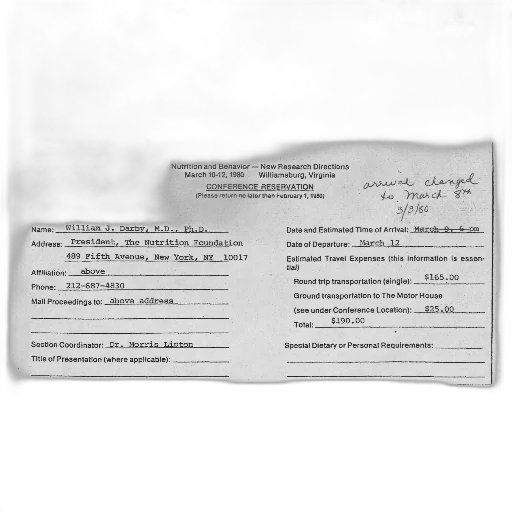 Nutrition and Behavior — New Research Directions
March 10-12, 1980 Williamsburg, Virginia
CONFERENCE RESERVATION
(Please return no later than February 1, 1980)
arrival changed
to March 8th
3/3/80
Name: William J. Darby, M.D., Ph.D.
Address: President, The Nutrition Foundation
489 Fifth Avenue, New York, NY 10017
Affiliation: above
Phone: 212-687-4830
Mail Proceedings to: above address
Section Coordinator: Dr. Morris Lipton
Title of Presentation (where applicable):
Date and Estimated Time of Arrival: March 9, 6 pm
Date of Departure: March 12
Estimated Travel Expenses (this information is essen-
tial)
Round trip transportation (single): $165.00
Ground transportation to The Motor House
(see under Conference Location): $25.00
Total: $190.00
Special Dietary or Personal Requirements: